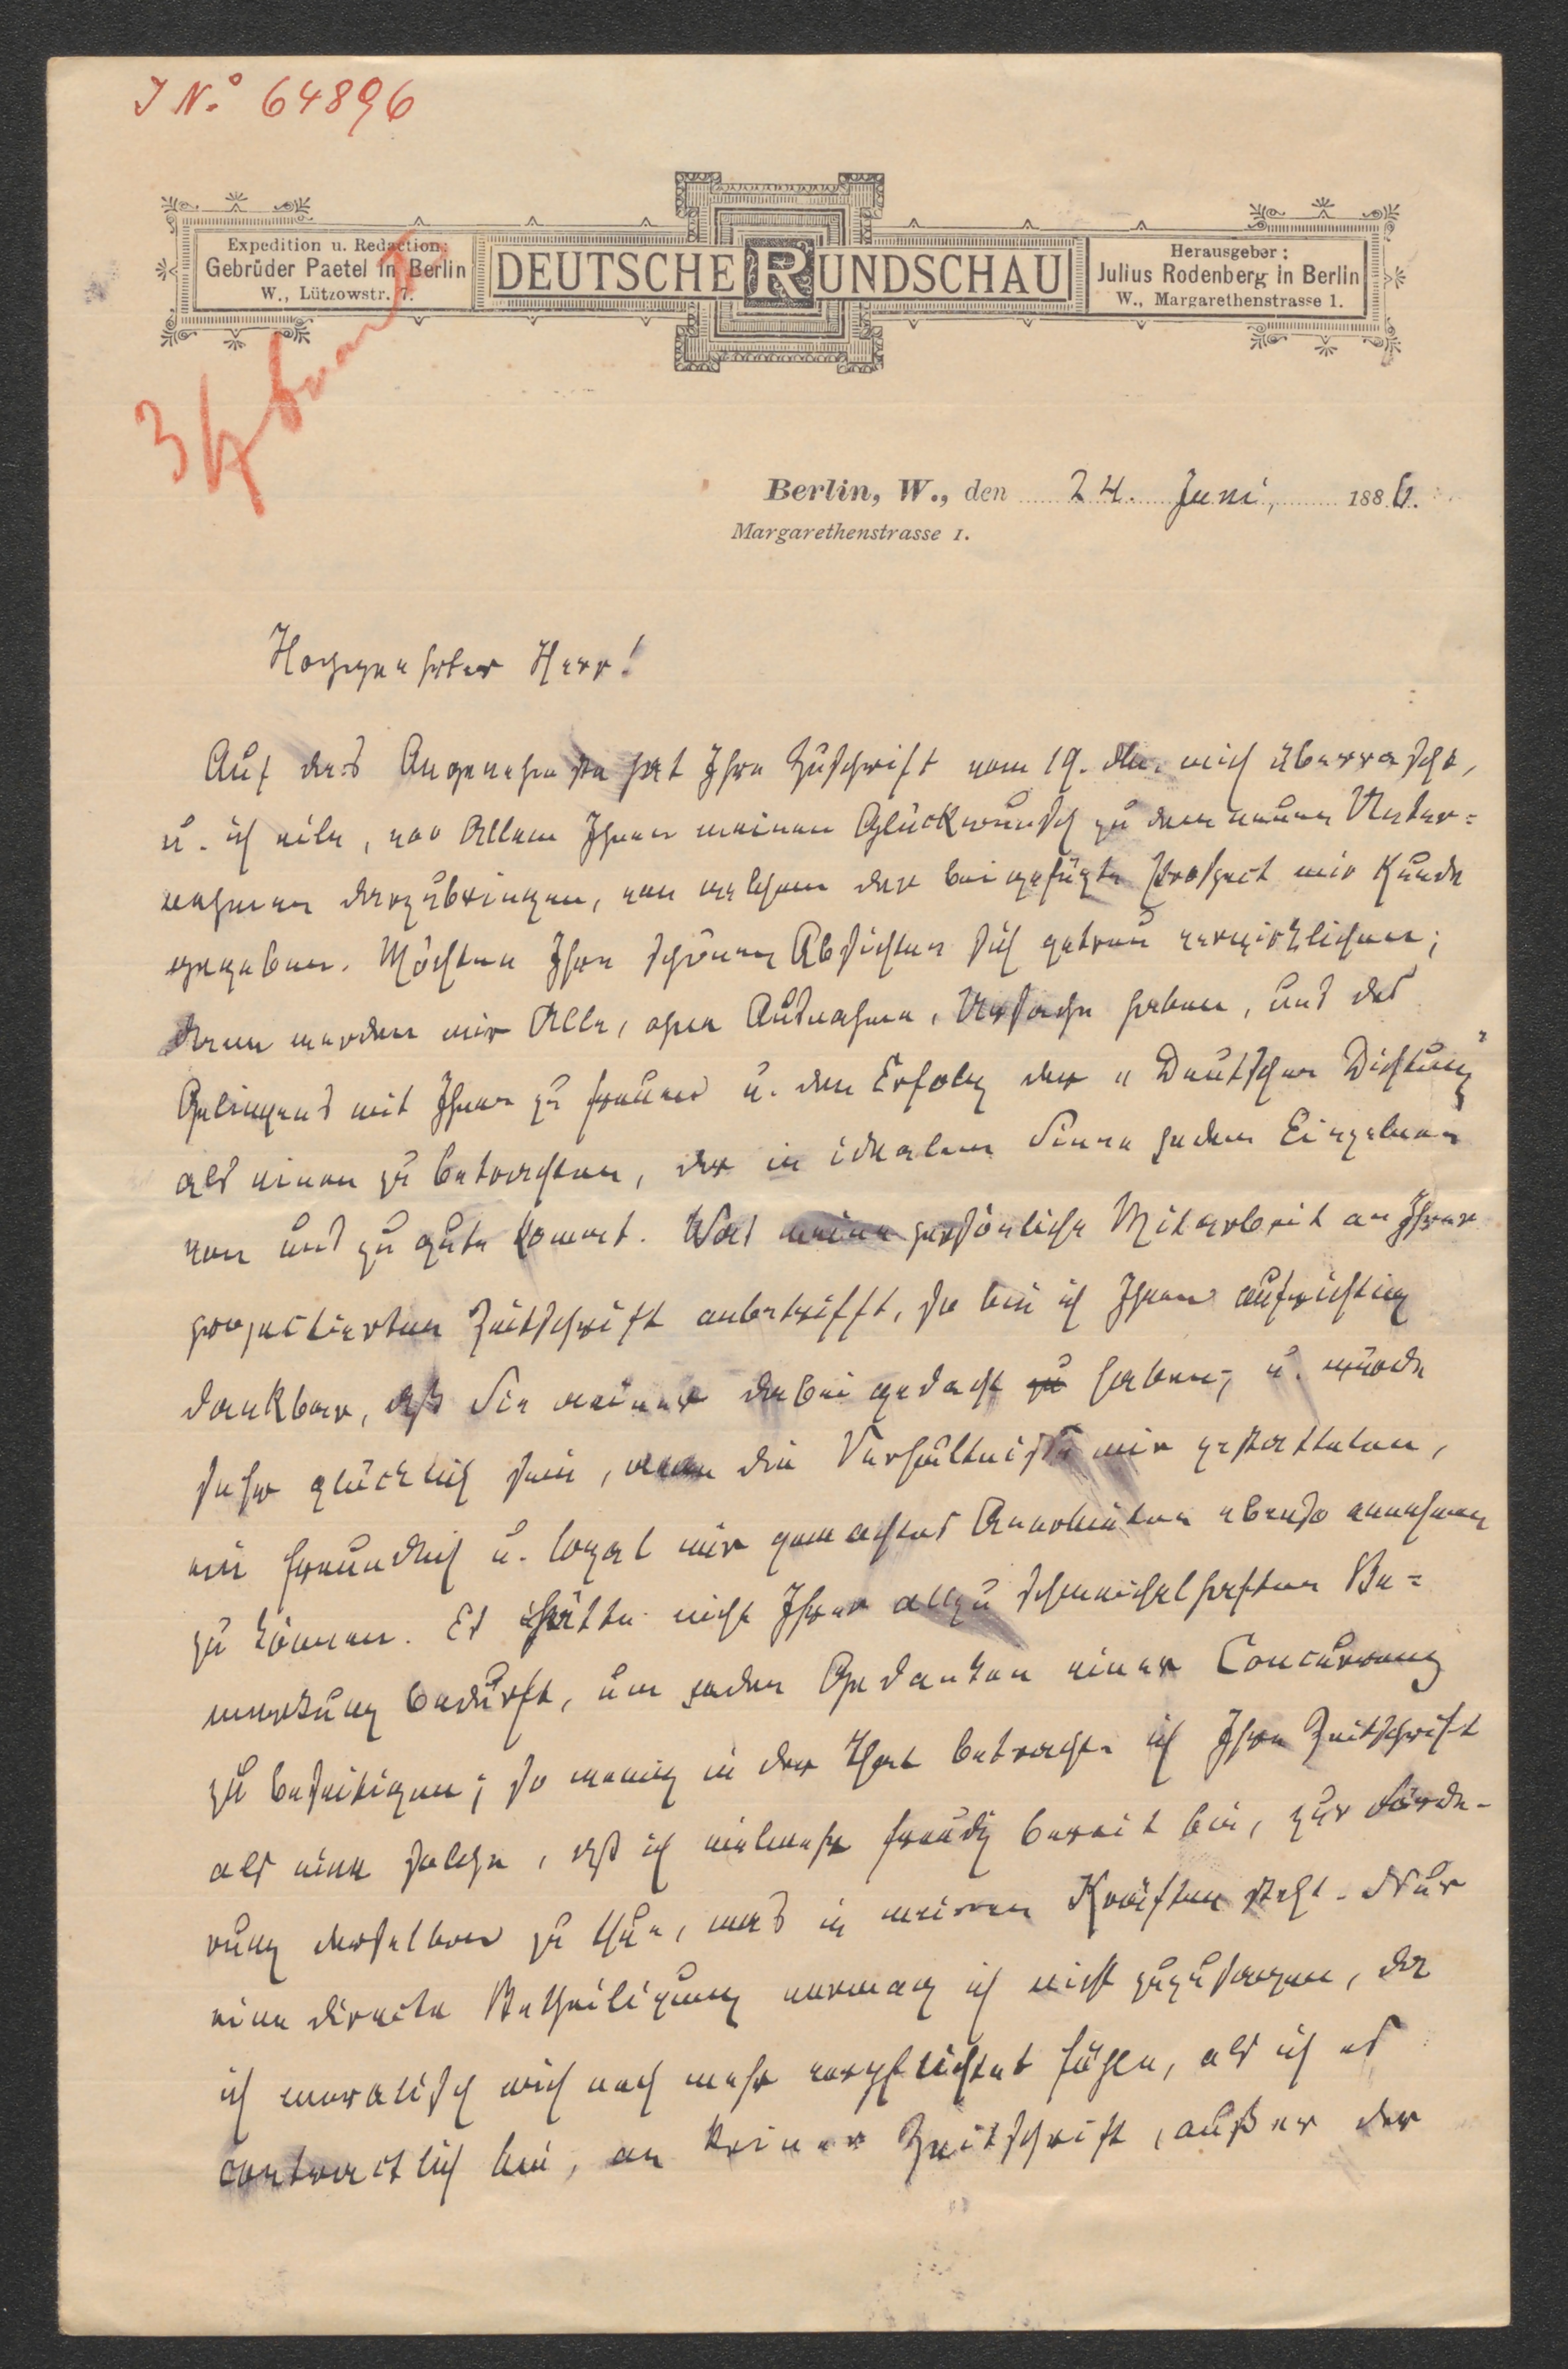 J N.º 64896
Expedition u. Redaction:
Gebrüder Paetel in Berlin
W., Lützowstr. 7.
DEUTSCHE RUNDSCHAU
Herausgeber:
Julius Rodenberg in Berlin
W., Margarethenstrasse 1.
Berlin, W., den 24. Juni, 1886.
Margarethenstrasse 1.
Hochgeehrter Herr!
Auf das Angenehmste hat Ihre Zuschrift vom 19. mich überrascht,
u. ich eile, vor Allem Ihnen meinen Glückwunsch zu dem neuen Unter=
nehmen darzubringen, von welchem der beigefügte Prospect mir Kunde
gegeben. Möchten Ihre schönen Absichten sich getreu verwirklichen;
dann werden wir Alle, ohne Ausnahme, Ursache haben, uns des
Gelingens mit Ihnen zu freuen u. den Erfolg der „Deutschen Dichtung"
als einen zu betrachten, der in idealem Sinne jedem Einzelnen
von uns zu gute kommt. Was meine persönliche Mitarbeit an Ihrer
projectierten Zeitschrift anbetrifft, so bin ich Ihnen aufrichtig
dankbar, daß Sie meiner dabei gedacht zu haben, u. würde
sehr glücklich sein, wenn die Verhältnisse mir gestatteten,
ein freundlich u. loyal mir gemachtes Anerbieten ebenso annehmen
zu können. Es hätte nicht Ihrer allzu schmeichelhaften Be=
merkung bedurft, um jeden Gedanken einer Concurrenz
zu beseitigen; so wenig in der That betrachte ich Ihre Zeitschrift
als eine solche, daß ich vielmehr freudig bereit bin, zur Förde-
rung derselben zu thun, was in meinen Kräften steht. Nur
eine directe Betheiligung vermag ich nicht zuzusagen, da
ich moralisch mich noch mehr verpflichtet fühle, als ich es
contractlich bin, an keiner Zeitschrift, außer der